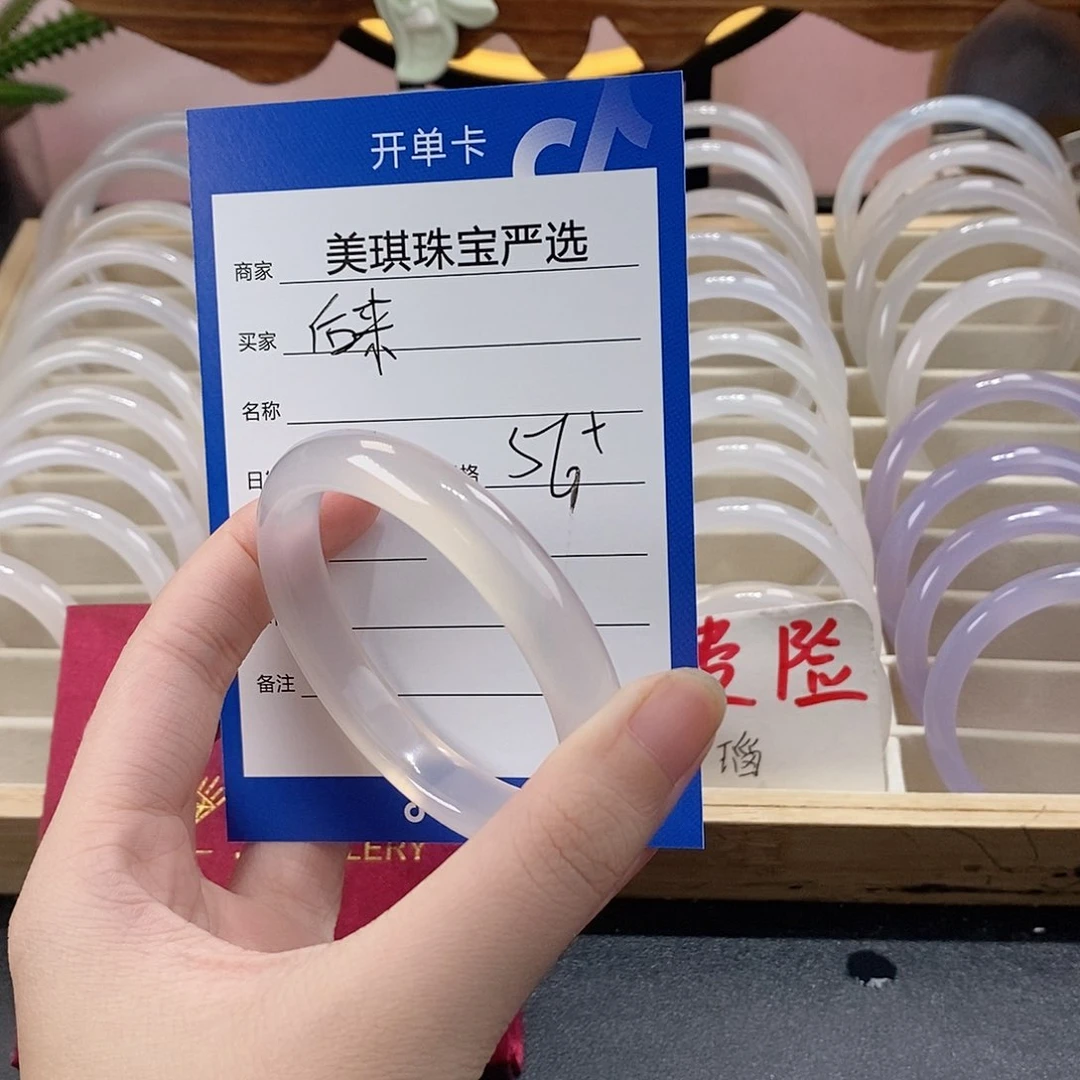 开单卡
商家 美琪珠宝严选
买家 后来
名称
格 56+
备注
险
瑙
LERY